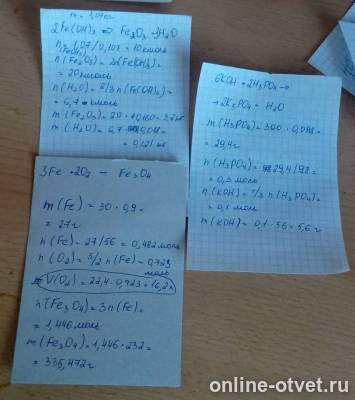 m = 1,07кг
2Fe(OH)3 ⇒ Fe2O3 + 3H2O
n(Fe(OH)3) 1,07/0,107 = 10 кмоль
n(Fe2O3) = 2n(Fe(OH)3) =
= 20 кмоль
n(H2O) = 2/3 n(Fe(OH)3) =
= 6,7 кмоль
m(Fe2O3) = 20 · 0,160 = 3,2 кг
m(H2O) = 6,7 · 0,018 =
= 0,121 кг
6KOH + 2H3PO4 →
→ 2K3PO4 + H2O
m(H3PO4) = 300 · 0,098 =
= 29,4г
n(H3PO4) = 29,4/98 =
= 0,3 моль
n(KOH) = 1/3 n(H3PO4) =
= 0,1 моль
m(KOH) = 0,1 · 56 = 5,6 г
3Fe + 2O2 → Fe3O4
m(Fe) = 30 · 0,9 =
= 27г
n(Fe) = 27/56 = 0,482 моль
n(O2) = 3/2 n(Fe) = 0,723
моль
V(O2) = 22,4 · 0,723 = 16,2л
n(Fe3O4) = 3n(Fe) =
= 1,446 моль
m(Fe3O4) = 1,446 · 232 =
= 335,472г
online-otvet.ru